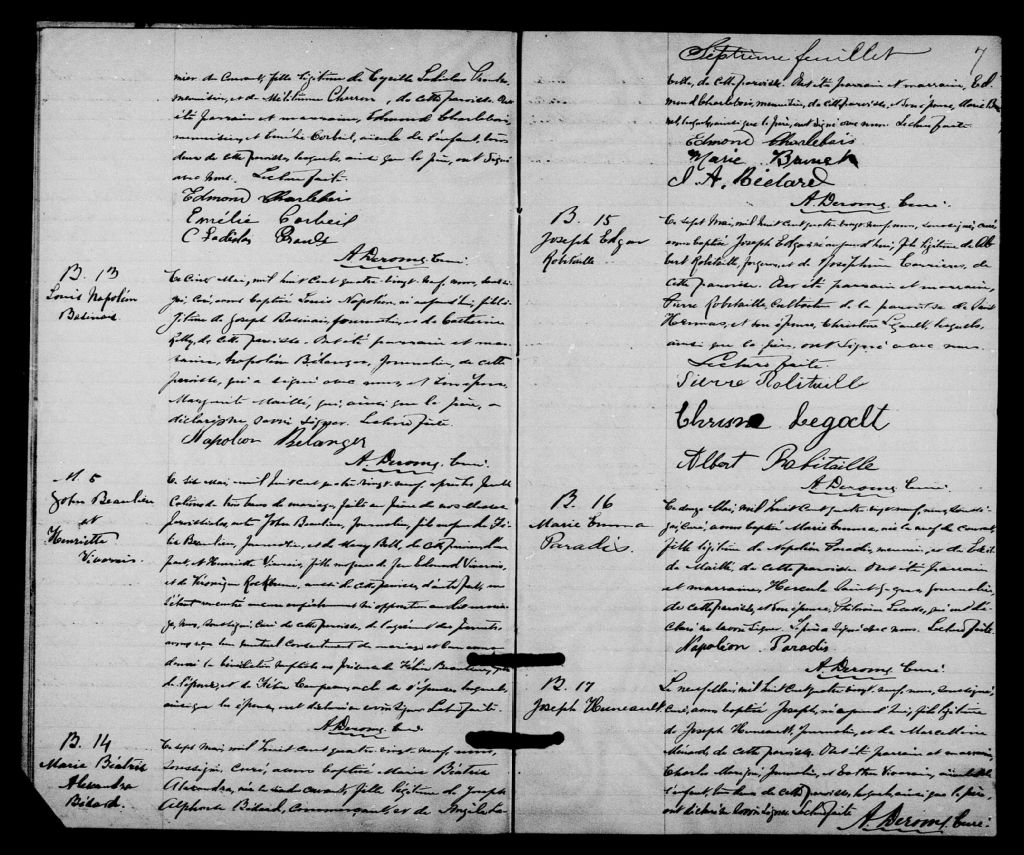 mier du Courant, fille légitime de Cyrille Ladislas
menuisier, et de Mélitime, de cette paroisse. Ont
été parrain et marraine, Edmond Charlebois,
menuisier, et Emélie Corbeil, aïeule de l'enfant, tous
deux de cette paroisse, lesquels, ainsi que le père, ont signé
avec nous. Lecture faite.
Edmond Charlebois
Emélie Corbeil
C Ladislas
A. Derome, Curé.
B. 13
Louis Napoléon
Basinais
Ce cinq Mai, mil huit cent quatre vingt-neuf, nous, soussi-
gné, Curé, avons baptisé Louis Napoléon, né aujourd'hui, fils lé-
gitime de Joseph Basinais, journalier, et de Catherine
de cette paroisse. Ont été parrain et mar-
raine, Napoléon Bélanger, Journalier, de cette
paroisse, qui a signé avec nous, et son épouse,
Marguerite Maillé, qui, ainsi que le père, a
déclaré ne savoir signer. Lecture faite.
Napoléon Bélanger
A. Derome, Curé.
M. 5
John Beaulieu
et
Henriette
Ce six Mai, mil huit cent quatre vingt-neuf, après la publi-
cation de trois bans de mariage, faite au prône de nos messes
paroissiales, entre John Beaulieu, Journalier, fils majeur de Fé-
lix Beaulieu, Journalier, et de Mary Bell, de cette paroisse, d'une
part, et Henriette
et de Véronique, aussi de cette paroisse, d'autre part, ne
s'étant rencontré aucun empêchement ni opposition au dit maria-
ge, nous, soussigné, Curé de cette paroisse, de l'agrément des parents,
avons reçu leur mutuel consentement de mariage, et leur avons
donné la bénédiction nuptiale en présence de Félix Beaulieu, père
de l'époux, et de Félix Campeau, oncle de l'épouse, lesquels,
ainsi que les époux, ont déclaré ne savoir signer. Lecture faite.
A. Derome, Curé.
B. 14
Marie Béatrix
Alexandra
Bédard.
Ce sept Mai, mil huit cent quatre vingt-neuf, nous,
soussigné, Curé, avons baptisé Marie Béatrix
Alexandra, née le six du courant, fille légitime de Joseph
Alphonse Bédard, Commerçant, et de
Septième feuillet
7
de cette paroisse. Ont été parrain et marraine, Ed-
mond Charlebois, menuisier, de cette paroisse, et son épouse, Marie Bru-
net, lesquels, ainsi que le père, ont signé avec nous. Lecture faite.
Edmond Charlebois
Marie Brunet
J. A. Bédard
A. Derome, Curé.
B. 15
Joseph Edgar
Robitaille
Ce sept Mai, mil huit cent quatre vingt-neuf, nous, soussigné, curé,
avons baptisé Joseph Edgar, né aujourd'hui, fils légitime de Al-
bert Robitaille, forgeron, et de Joséphine Carrières, de
cette paroisse. Ont été parrain et marraine,
Pierre Robitaille, cultivateur de la paroisse de Saint
Hermas, et son épouse, Christine Legault, lesquels,
ainsi que le père, ont signé avec nous.
Lecture faite.
Pierre Robitaille
Legault
Albert Robitaille
A. Derome, Curé.
B. 16
Marie Emma
Paradis.
Ce Mai, mil huit cent quatre vingt-neuf, nous, soussi-
gné, Curé, avons baptisé Marie Emma, née le neuf du courant,
fille légitime de Napoléon Paradis, meunier, et de
Maillé, de cette paroisse. Ont été parrain
et marraine, Hercule, journalier,
de cette paroisse, et son épouse, qui ont dé-
claré ne savoir signer. Le père a signé avec nous. Lecture faite.
Napoléon Paradis
A. Derome, Curé.
B. 17
Joseph Huneault
Le neuf Mai, mil huit cent quatre vingt-neuf, nous, soussigné,
Curé, avons baptisé Joseph, né aujourd'hui, fils légitime
de Joseph Huneault, Journalier, et de Marcelline
de cette paroisse. Ont été parrain et marraine,
Charles, Journalier, et Esther
l'enfant, tous deux de cette paroisse, lesquels, ainsi que le père,
ont déclaré ne savoir signer. Lecture faite
A. Derome, Curé.